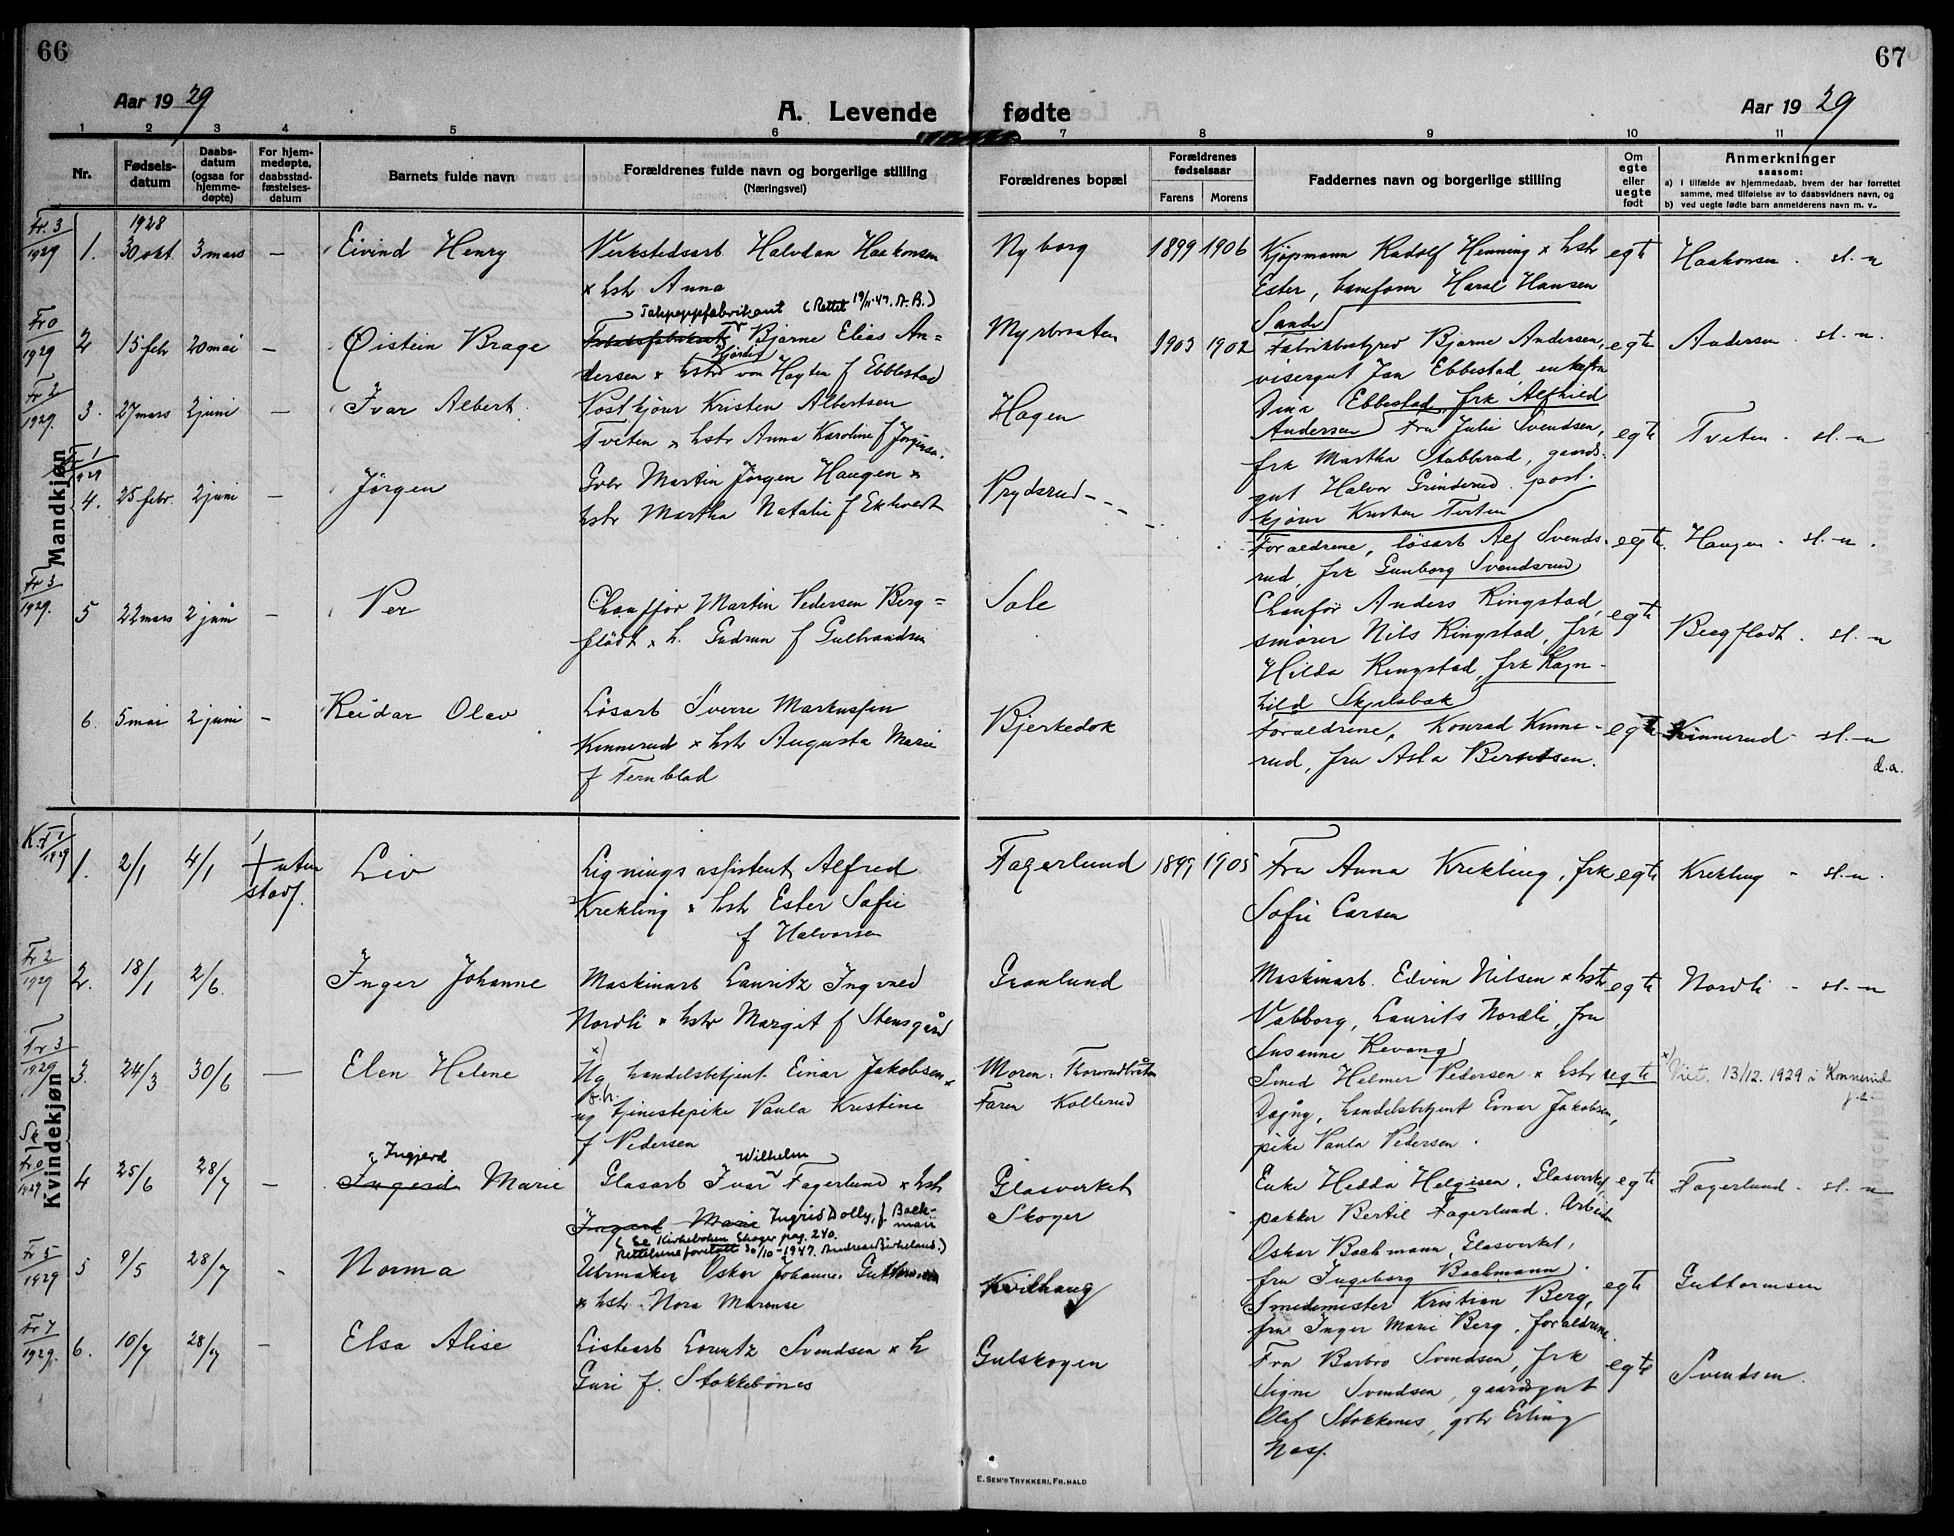 66
67
Aar 1929
A. Levende fødte
Aar 1929
1 2 3 4 5 6 7 8 9 10 11
Nr.
Fødsels-
datum
Daabs-
datum
(ogsaa for
hjemme-
døpte)
For hjem-
medøpte,
daabsstad-
fæstelses-
datum
Barnets fulde navn
Forældrenes fulde navn og borgerlige stilling
(Næringsvei)
Forældrenes bopæl
Forældrenes
fødselsaar
Farens Morens
Faddernes navn og borgerlige stilling
Om
egte
eller
uegte
født
Anmerkninger
saasom:
a) i tilfælde av hjemmedaab, hvem der har forrettet
samme, med tilføielse av to daabsvidners navn, og
b) ved uegte fødte barn anmelderens navn m. v.
Mandkjøn
Fr. 3
1929
1928
1. 30 okt. 3 mars — Eivind Henry
Verkstedsarb. Halvdan Haakonsen
x hstr Anna
Nyborg 1899 1906
Kjøpmann Radolf Henning x hstr
Ester, Haral Hansen
Sande
egte Haakonsen. sl. n
Fr 0
1929
2 15 febr 20 mai — Øistein Brage
Takpappfabrikant (Rettet 19/11-47. A.B.)
Bjarne Elias An=
Hjørdis
dersen x hstr von Hagten f Ebbestad
Myrbraaten 1903 1902
Fabrikkbestyrer Bjarne Andersen,
visergut Jan Ebbestad, enkefru
Dina Ebbestad, frk Alfhild
Andersen
egte Andersen. sl. n.
Fr 2
1929.
3. 27 mars 2 juni — Ivar Albert
Postkjører Kristen Albertsen
Tveten x hstr Anna Karoline f Jørgensen.
Hagen
Fru Julie Svendsen,
frk Martha Stubberud, gaards-
gut Halvor Grinderud. post.
kjører Kristen Tveten
egte Tveten - sl. - n
Fr 1
1929
4. 25 febr. 2 juni — Jörgen
Gbr Martin Jörgen Haugen x
hstr Martha Natalie f Ekhvedt
Prydsrud
Foraeldrene, løsarb Alf Svends-
rud, frk Gunborg Svendsrud
egte. Haugen - sl. - n.
Fr 3
1929.
5 22 mars 2 juni — Per
Chauffør Martin Pedersen Berg=
flødt x h. Gudrun f Gulbrandsen
Sole
Chaufør Anders Ringstad,
smører Nils Ringstad, frk
Hilda Ringstad, frk Ragn-
hild Skjelsbæk
egte Bergflødt. sl. - n
6. 5 mai 2 juni — Reidar Olav
Løsarb Sverre Markussen
Kinnerud x hstr Augusta Marie
f Ternblad
Bjerkedok
Foraeldrene, Konrad Kinne-
rud, fru Asta Berntsen.
egte Kinnerud - sl. - n
d.a.
Kvindekjøn
Kr. 1
1929
1. 2/1 4/1 + uten
stadf. Liv
Ligningsassistent Alfred
Krekling x hstr Ester Sofie
f Halvorsen
Fagerlund 1899 1905
Fru Anna Krekling, frk
Sofie Larsen
egte Krekling - sl. - n.
Fr 2
1929
2. 18/1 2/6. Inger Johanne
Maskinarb Lauritz Ingvald
Nordli x hstr Margit f Stensgård
Granlund
Maskinarb. Edvin Nilsen x hstr
Valborg, Laurits Nordli, fru
Susanne Revang
egte Nordli - sl. - n
Fr 3
1929
3. 24/3 30/6 — Elen Helene
x)
Ug handelsbetjent Einar Jakobsen x
ug tjenestepike Paula Kristine
f Pedersen
Moren: Thorrudbråten
Faren Kollerud
Smed Helmer Pedersen x hstr
Dagny, handelsbetjent Einar Jakobsen,
pike Paula Pedersen.
uegte x) Viet. 13/12. 1929 i Konnerud
Sk
Fr 0
1929
4 25/6 28/7 — Ingjerd
Ingerid Marie
Wilhelm
Glasarb Ivar Fagerlund x hstr
Ingard Marie Ingrid Dolly, f Back-
man
(Se Kirkeboken Skoger pag. 240.
Rettelsene foretatt 30/10-1947. Andreas Birkeland.)
Glasverket
Skoger
Enke Hedda Helgisen, Glasverket,
pakker Bertil Fagerlund. Arbeider
Oskar Bachmann, Glasverket,
fru Ingeborg Bachmann.
egte Fagerlund - sl. - n
Fr 5
1929
5 9/5 28/7 - Norma
Urmaker Oskar Johannes Guttormsen
x hstr. Nora Marense
Kvilhaug
Smedemester Kristian Berg,
fru Inger Marie Berg, foraeldrene.
egte Guttormsen
Fr 7
1929.
6. 10/7 28/7 — Elsa Alise
Listearb Lorentz Svendsen x h
Guri f. Stokkebönes
Gulskogen
Fru Barbro Svendsen, frk
Signe Svendsen, gaardsgut
Olaf Stokkenes, gbr Erling
Næss.
egte Svendsen.
E. SEM'S TRYKKERI, FR.HALD